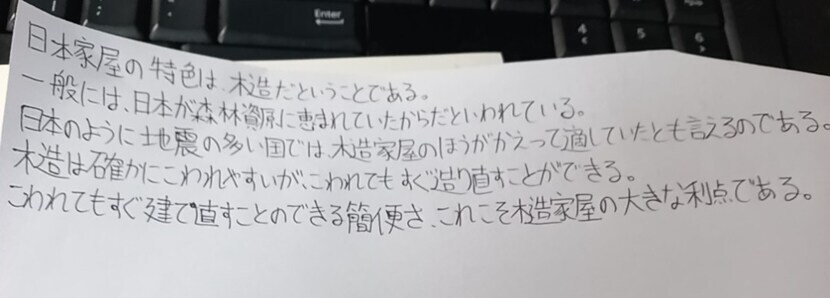 Enter
4
5
6
日本家屋の特色は、木造だということである。
一般には、日本が森林資源に恵まれていたからだといわれている。
日本のように地震の多い国では、木造家屋のほうがかえって適していたとも言えるのである。
木造は確かにこわれやすいが、こわれてもすぐ造り直すことができる。
こわれてもすぐ建て直すことのできる簡便さ、これこそ木造家屋の大きな利点である。